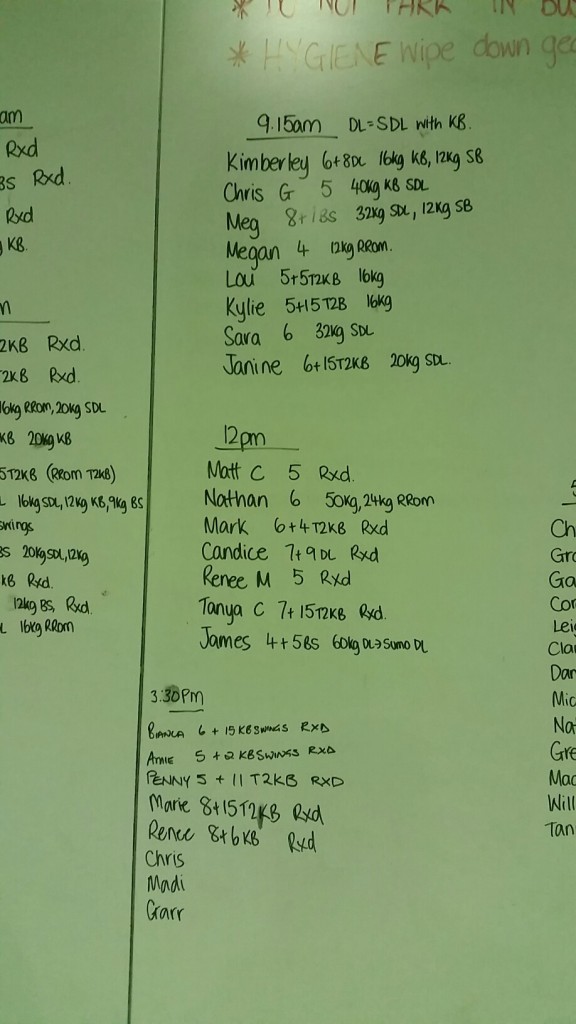 * TO NOT PARK IN BUS
* HYGIENE wipe down gea
am
Rxd
BS Rxd.
Rxd
KB.
2KB Rxd.
T2KB Rxd.
16kg RRom, 20kg SDL
KB 20kg KB
5T2KB (RRom T2KB)
L 16kg SDL, 12kg KB, 9kg BS
swings
BS 20kg SDL, 12kg
KB Rxd.
12kg BS, Rxd.
L 16kg RRom
9.15am DL=SDL with KB.
Kimberley 6+8DL 16kg KB, 12kg SB
Chris G 5 40kg KB SDL
Meg 8+1BS 32kg SDL, 12kg SB
Megan 4 12kg RRom.
Lou 5+5T2KB 16kg
Kylie 5+15T2B 16kg
Sara 6 32kg SDL
Janine 6+15T2KB 20kg SDL.
12pm
Matt C 5 Rxd.
Nathan 6 50kg, 24kg RRom
Mark 6+4T2KB Rxd
Candice 7+9DL Rxd
Renee M 5 Rxd
Tanya C 7+15T2KB Rxd.
James 4+5BS 60kg DL→Sumo DL
3:30Pm
BIANCA 6 + 15 KBSWINGS RXD
5 + 2 KBSWINGS RXD
PENNY 5 + 11 T2KB RXD
Marie 8+15T2KB Rxd
Renee 8+6KB Rxd
Chris
Madi
Garr
Ch
Gra
Ga
Cor
Leig
Clai
Dan
Mic
Na
Gre
Mad
Will
Tan